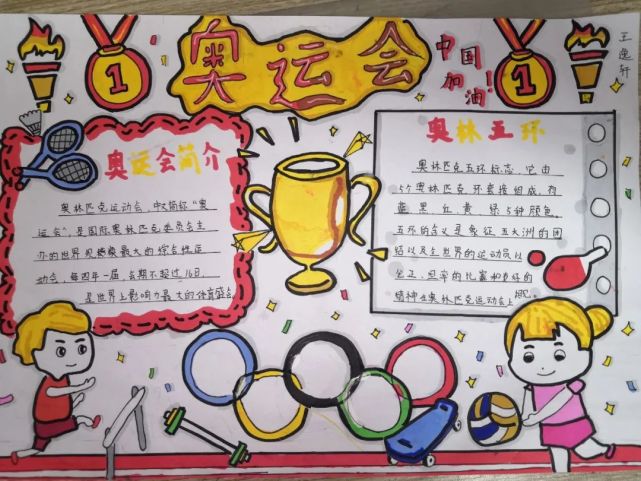 奥运会
中国
加油!
王逸轩
1
1
奥运会简介
奥林匹克运动会,中文简称“奥
运会”,是国际奥林匹克委员会主
办的世界规模最大的综合性运
动会,每四年一届,会期不超过16日,
是世界上影响力最大的体育盛会
奥林五环
奥林匹克五环标志,它由
5个奥林匹克环套接组成,有
蓝、黑、红、黄、绿5种颜色。
五环的含义是象征五大洲的团
结以及全世界的运动员以
公正、坦率的比赛和友好的
精神在奥林匹克运动会上相见。